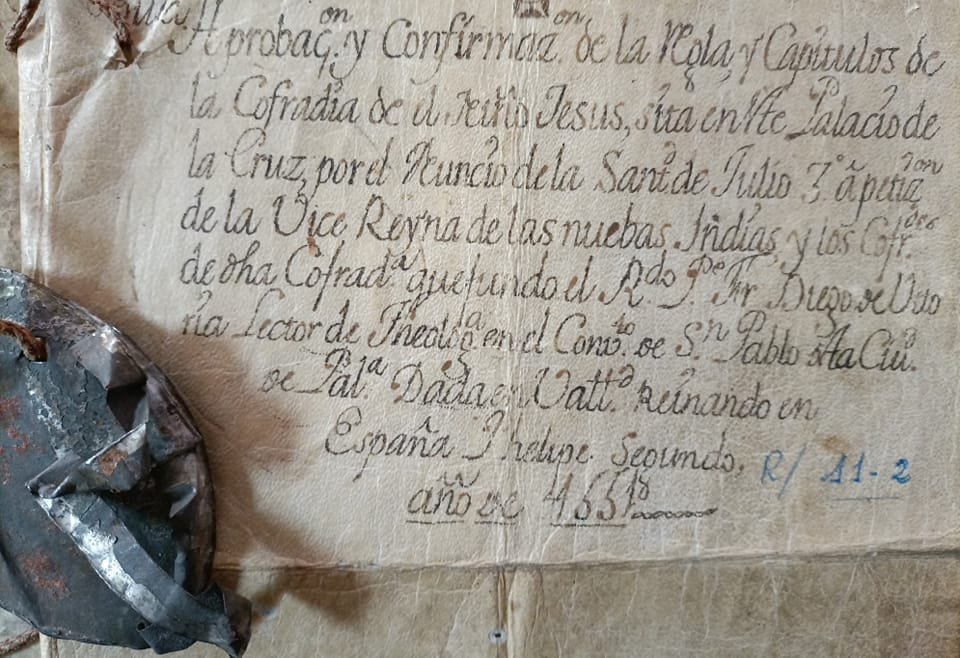 Aprobaç.on y Confirmaz.on de la Rega, y Capitulos de
la Cofradia de el Niño Jesus, sita en Palacio de
la Cruz, por el Nuncio de la Santd de Julio 3º â petiz.on
de la Vice Reyna de las nuebas Indias, y los Cofr.des
de dha Cofrad.a que fundo el R.do P.e Fr. Diego de Vito
ria Lector de Theolog.a en el Conv.to de S.n Pablo dsta Ciu.
de Pal.a Dada en Vall.d Reinando en
España Phelipe Segundo.
año de 1551
R/ 11-2